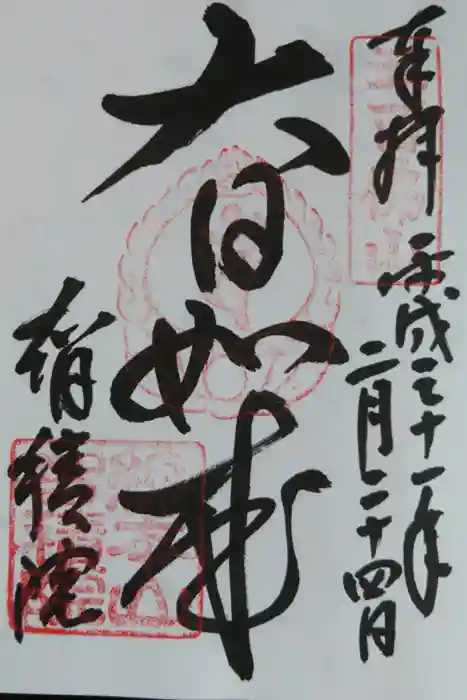 奉拝
平成三十一年
二月二十四日
大日如来
智積院